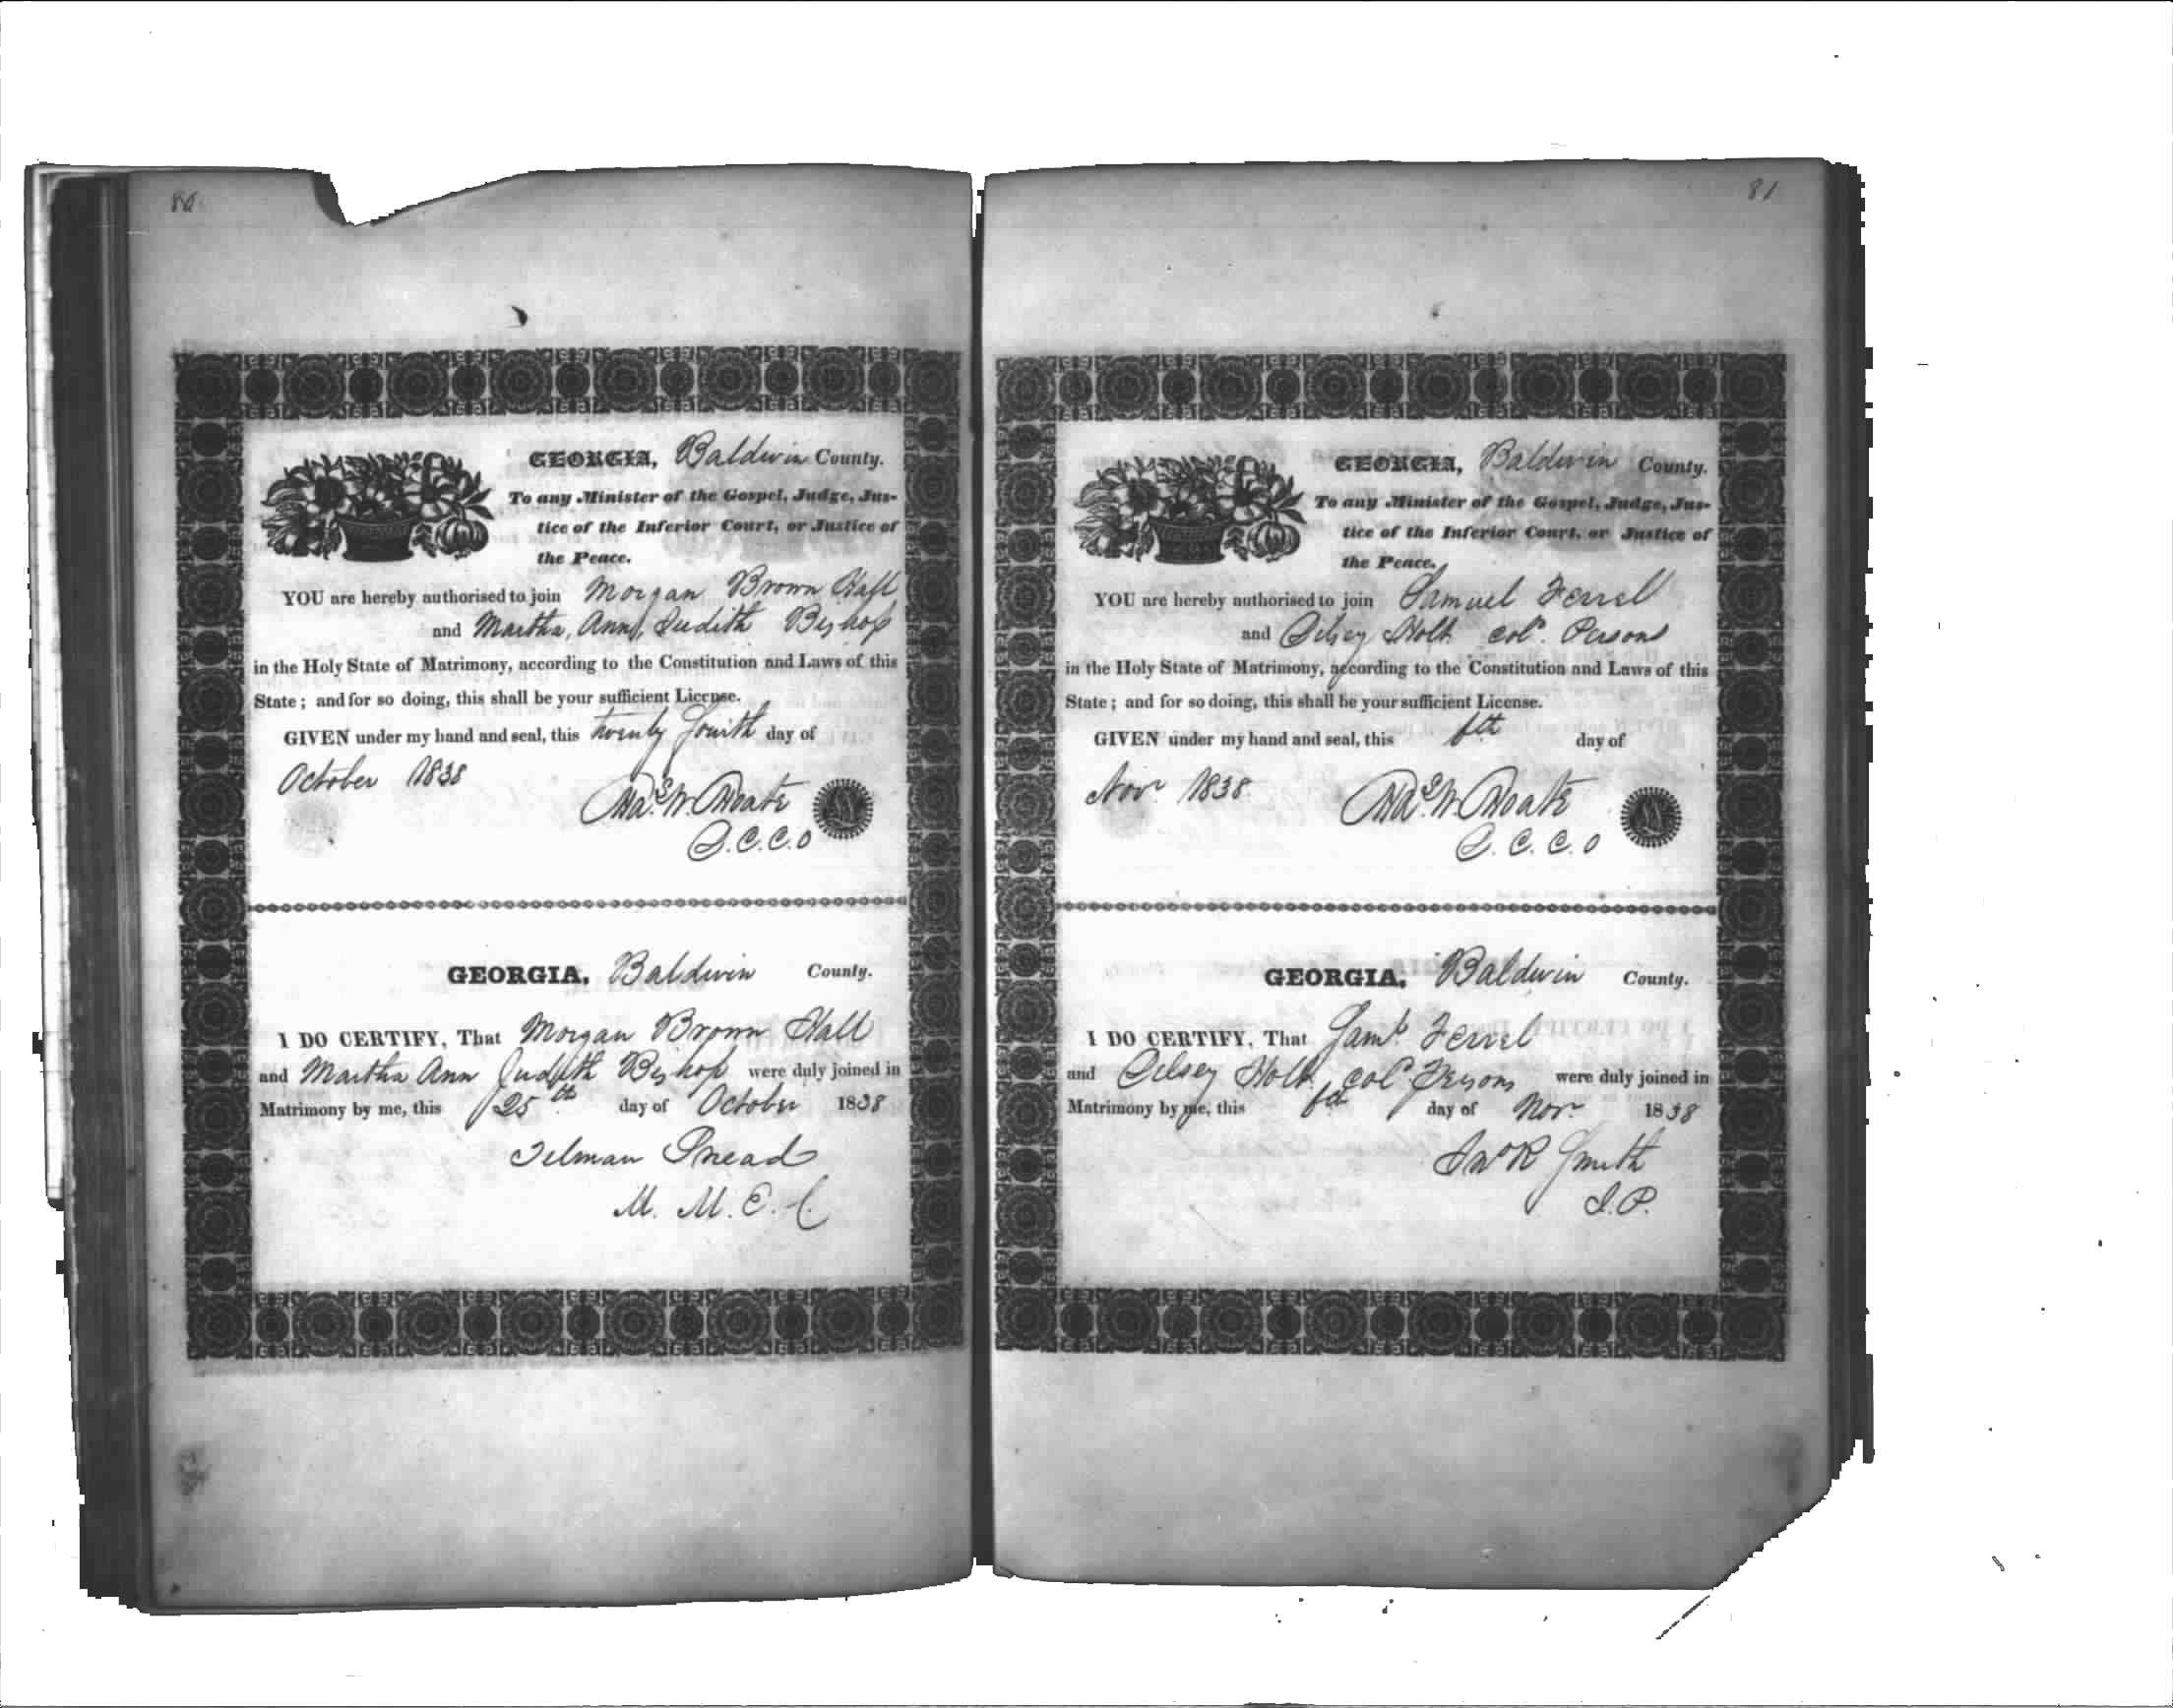 80
GEORGIA, Baldwin County.
To any Minister of the Gospel, Judge, Jus-
tice of the Inferior Court, or Justice of
the Peace.
YOU are hereby authorised to join Morgan Brown Hall
and Martha, Ann, Judith Bishop
in the Holy State of Matrimony, according to the Constitution and Laws of this
State; and for so doing, this shall be your sufficient License.
GIVEN under my hand and seal, this twenty fourth day of
October 1838
C.C.O
GEORGIA, Baldwin County.
I DO CERTIFY, That Morgan Brown Hall
and Martha Ann Judith Bishop were duly joined in
Matrimony by me, this 25th day of October 1838
Tilman Snead
M. M. E. C.
81
GEORGIA, Baldwin County.
To any Minister of the Gospel, Judge, Jus-
tice of the Inferior Court, or Justice of
the Peace.
YOU are hereby authorised to join Samuel Ferrel
and Holt cold. Persons
in the Holy State of Matrimony, according to the Constitution and Laws of this
State; and for so doing, this shall be your sufficient License.
GIVEN under my hand and seal, this day of
Novr 1838
C. C. O
GEORGIA, Baldwin County.
I DO CERTIFY, That Saml. Ferrel
and Holt cold Persons were duly joined in
Matrimony by me, this day of Novr 1838
Jno R Smith
J.P.